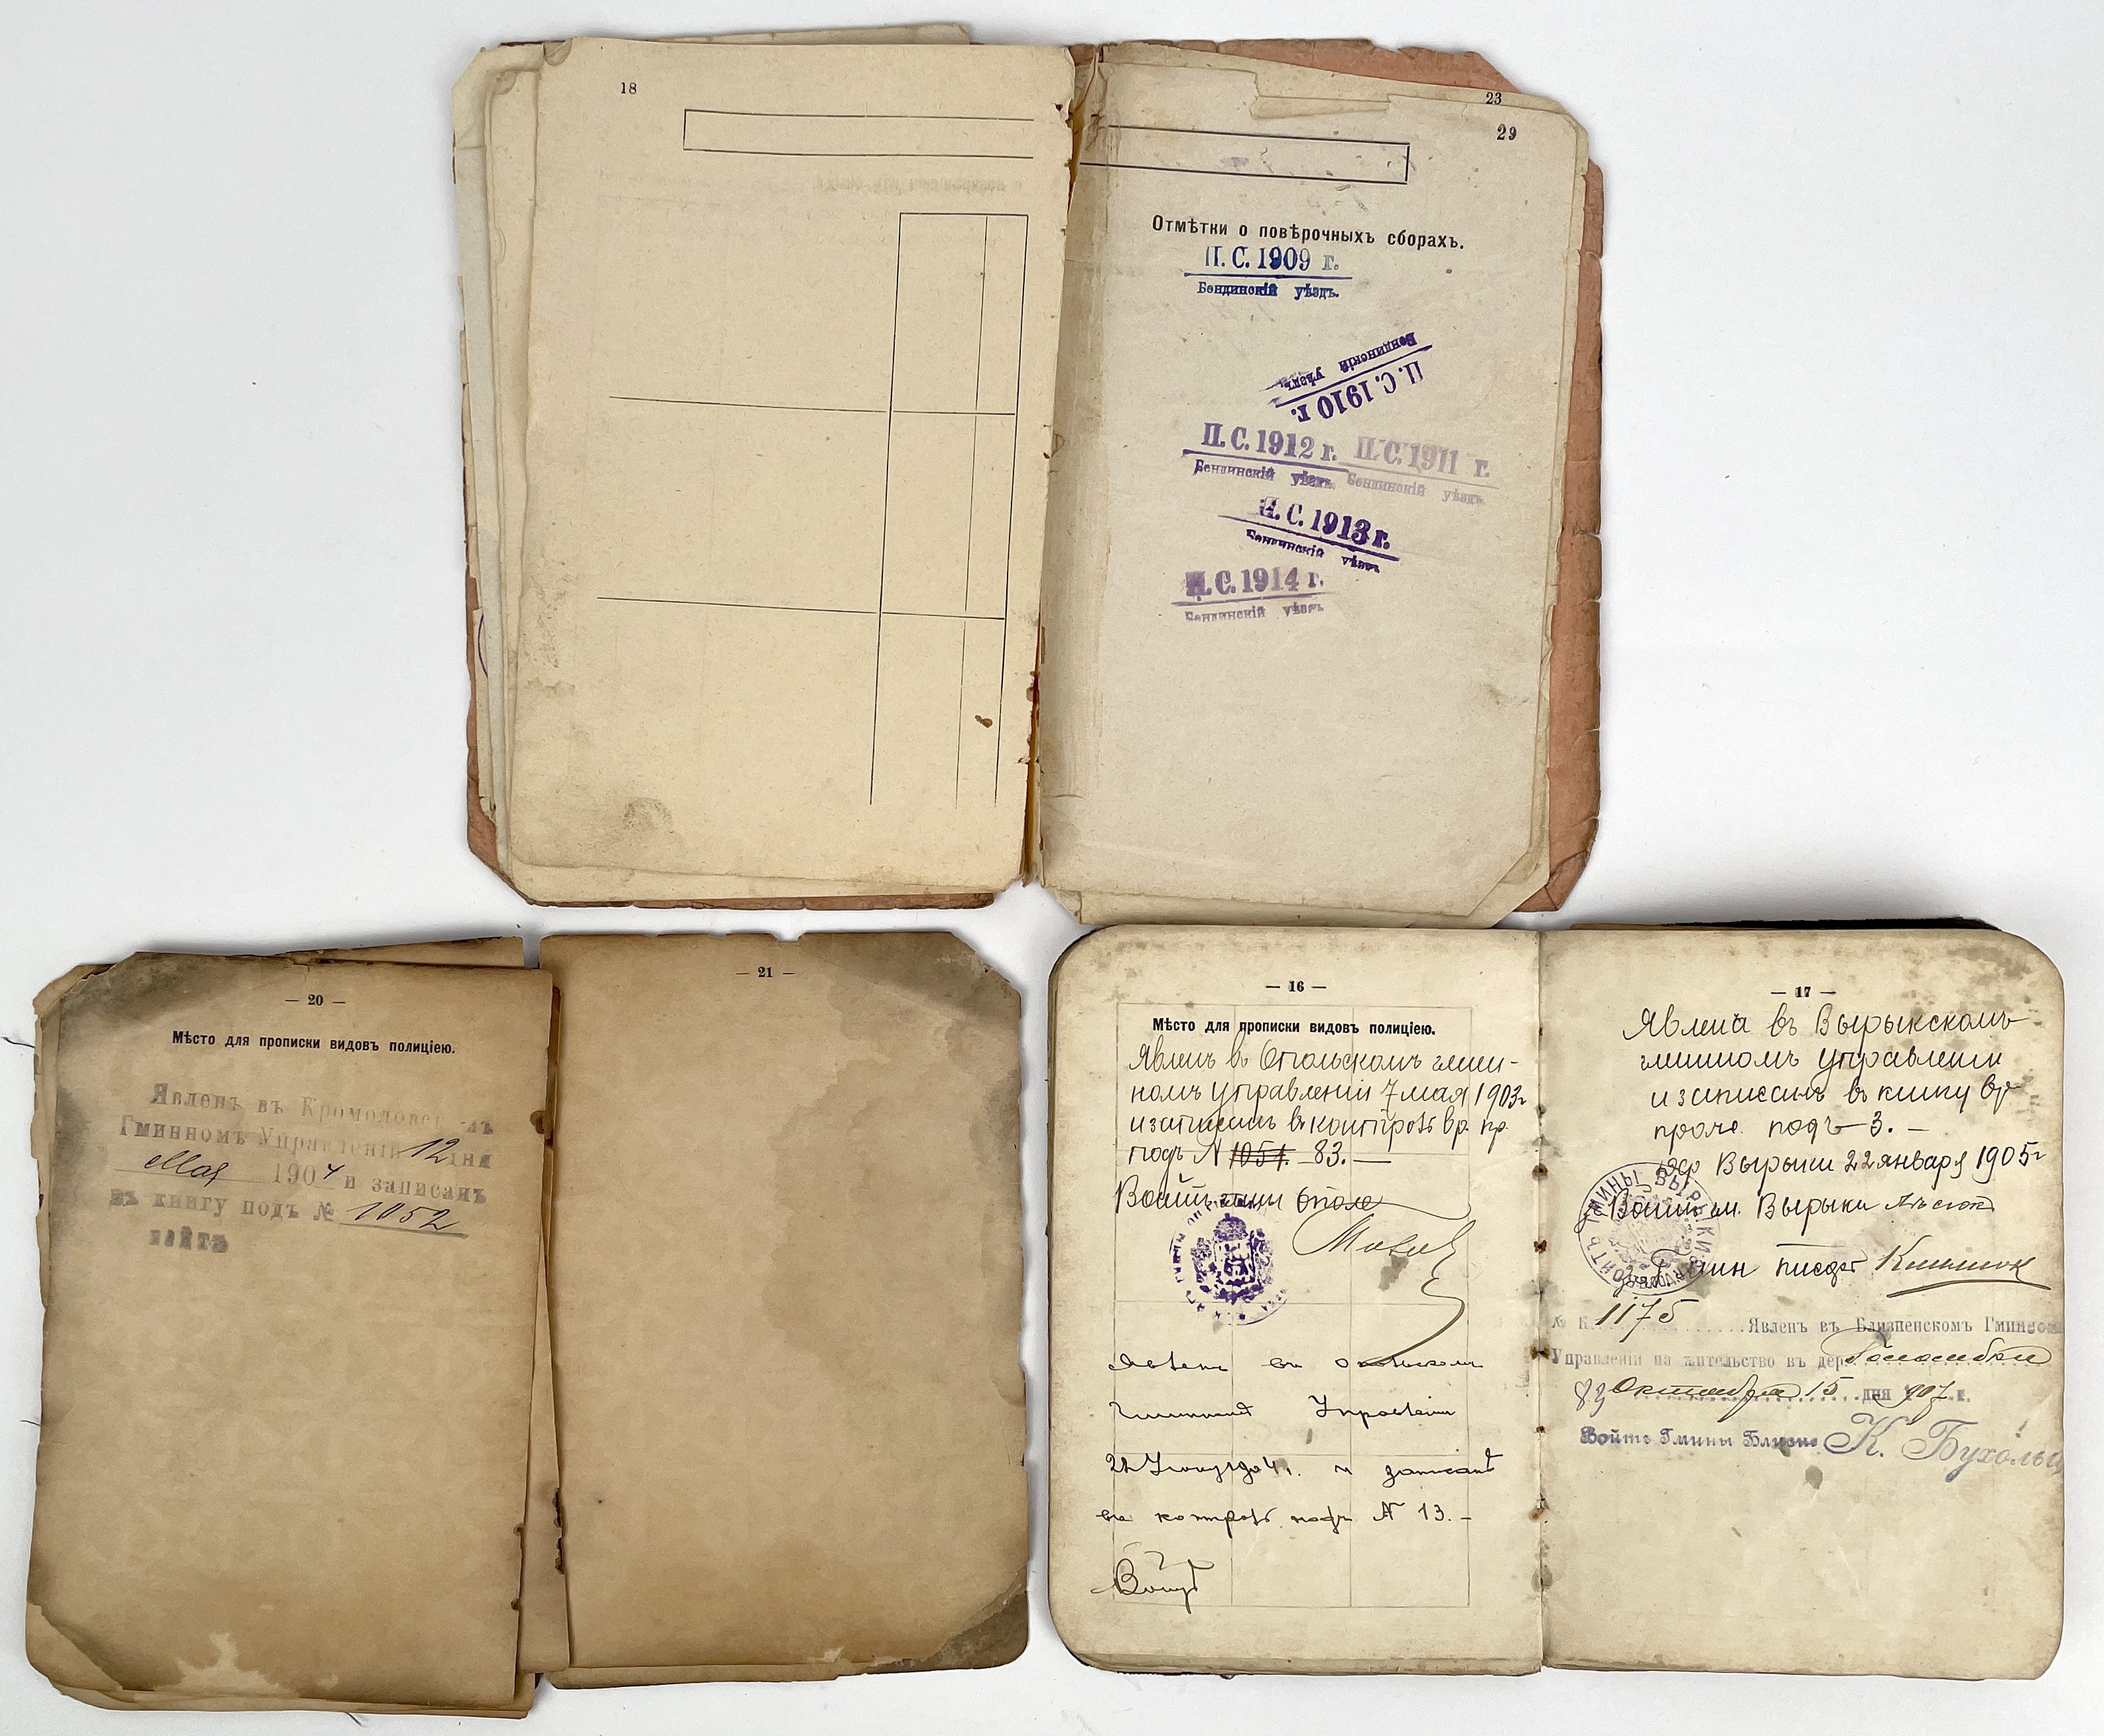 18
23
29
Отмѣтки о повѣрочныхъ сборахъ.
П. С. 1909 г.
Бендинскій уѣздъ.
П. С. 1910 г.
Бендинскій уѣздъ
П. С. 1912 г. П. С. 1911 г.
Бендинскій уѣздъ Бендинскій уѣздъ
П. С. 1913 г.
Бендинскій уѣздъ
П. С. 1914 г.
Бендинскій уѣздъ
— 20 —
Мѣсто для прописки видовъ полиціею.
Явленъ въ
Гминномъ Управленіи 12 дня
Мая 1904 и записанъ
въ книгу подъ № 1052
войтъ
— 21 —
— 16 —
Мѣсто для прописки видовъ полиціею.
Явленъ въ Опольскомъ гмин-
номъ управленіи 7 мая 1903 г
и записанъ въ контроль вр. пр.
подъ N 1051. 83. —
Войтъ гмины Ополе
Явленъ въ
Гминномъ Управленіи
и записанъ
въ контроль подъ N 13. –
Войтъ
— 17 —
Явленъ въ Вырыкскомъ
гминномъ управленіи
и записанъ въ книгу вр
проч. подъ 3. –
дер Вырыки 22 января 1905 г
Войтъ гм. Вырыки
ВОЙТЪ ГМИНЫ ВЫРЫКИ
Гмин писарь
№ К. 1175 Явленъ въ Близненскомъ Гминном
Управленіи на жительство въ дер.
Октября 15 дня 907 г.
Войтъ Гмины Близне К. Бухольц